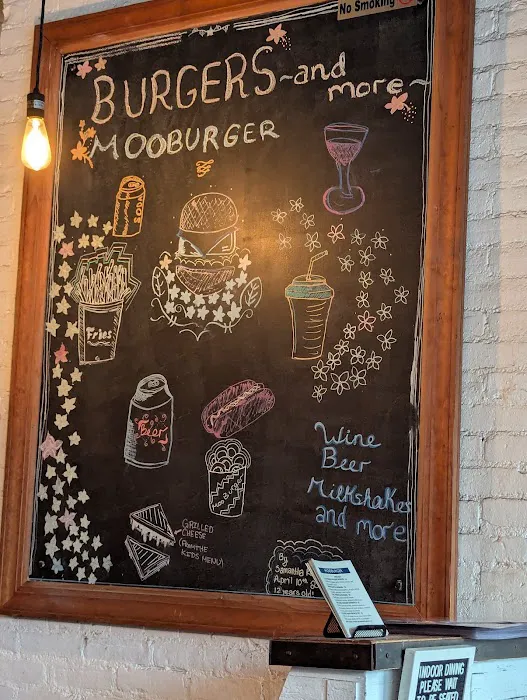 No Smoking
BURGERS ~and
more~
MOOBURGER
SODA
Fries
Beer
Wine
Beer
Milkshakes
and more
GRILLED
CHEESE
(FROM THE
KIDS MENU)
By
Samantha
April 10th
12 years old
INDOOR DINING
PLEASE WAIT
TO BE SEATED